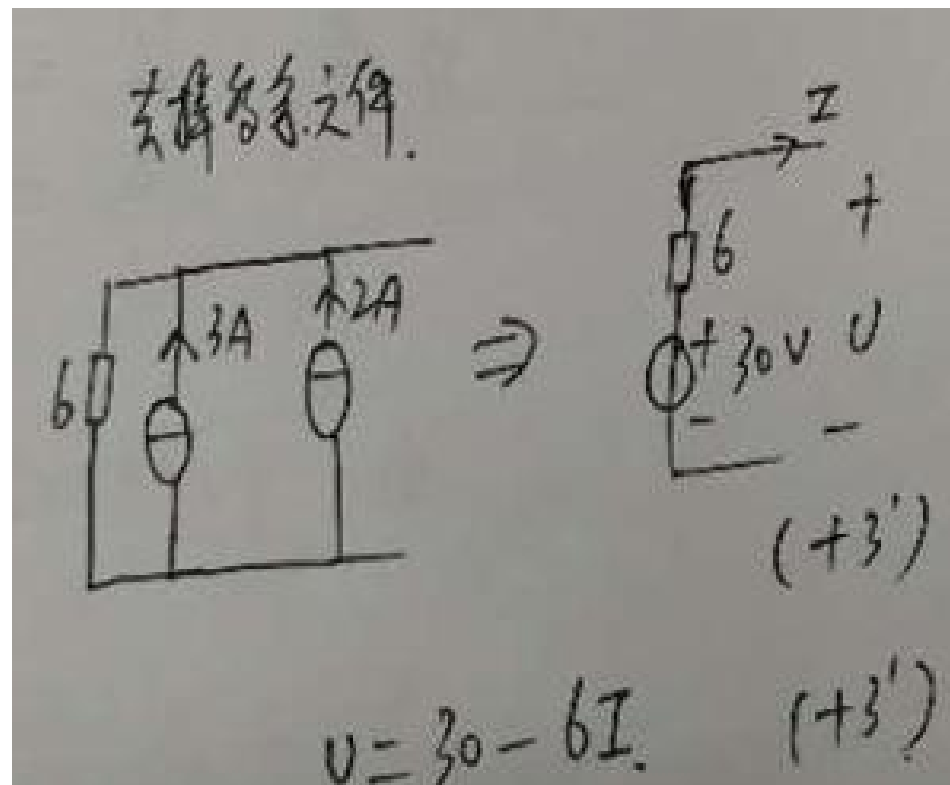 去掉多余元件.
I
6
+
3A
2A
6
⇒
+
30V
U
-
-
(+3')
U=30-6I.
(+3')